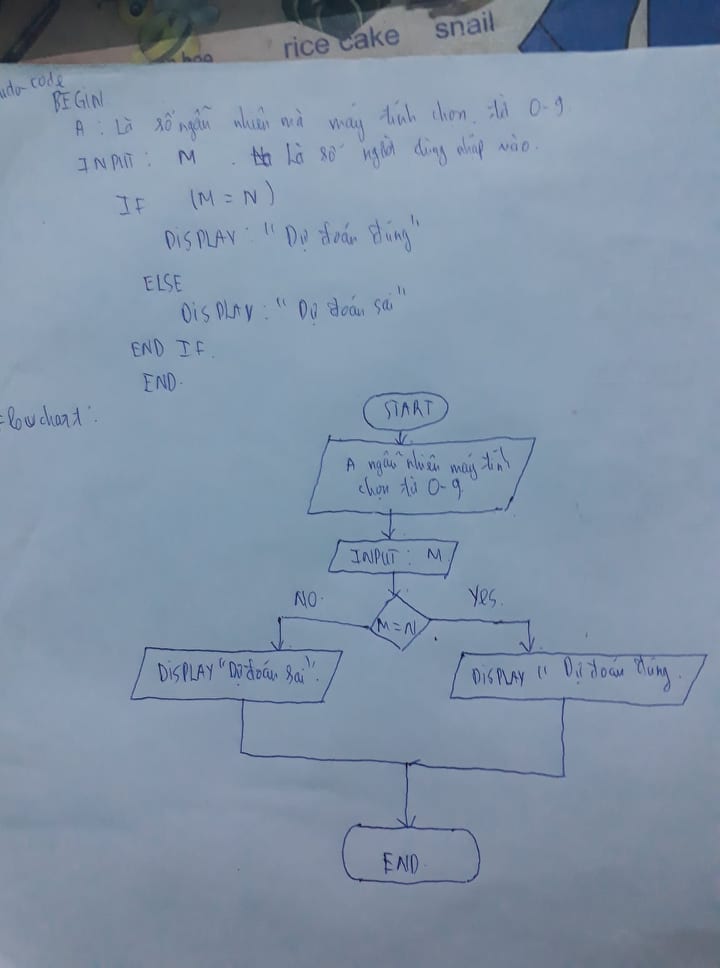 rice cake snail
udo-code
BEGIN
A : Là số ngẫu nhiên mà máy tính chọn. từ 0-9.
INPUT : M . Là số người dùng nhập vào.
IF (M = N)
DISPLAY : "Dự đoán đúng"
ELSE
DISPLAY : "Dự đoán sai"
END IF.
END.
Flowchart :
START
A ngẫu nhiên máy tính
chọn từ 0-9
INPUT : M
NO. Yes.
M=N
DISPLAY "Dự đoán sai". DISPLAY " Dự đoán đúng.
END.